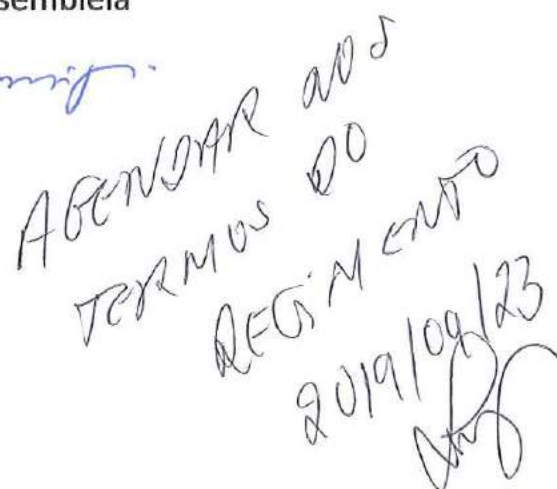 sembleia
AGENDAR AOS
TERMOS DO
REGIMENTO
2019/09/23